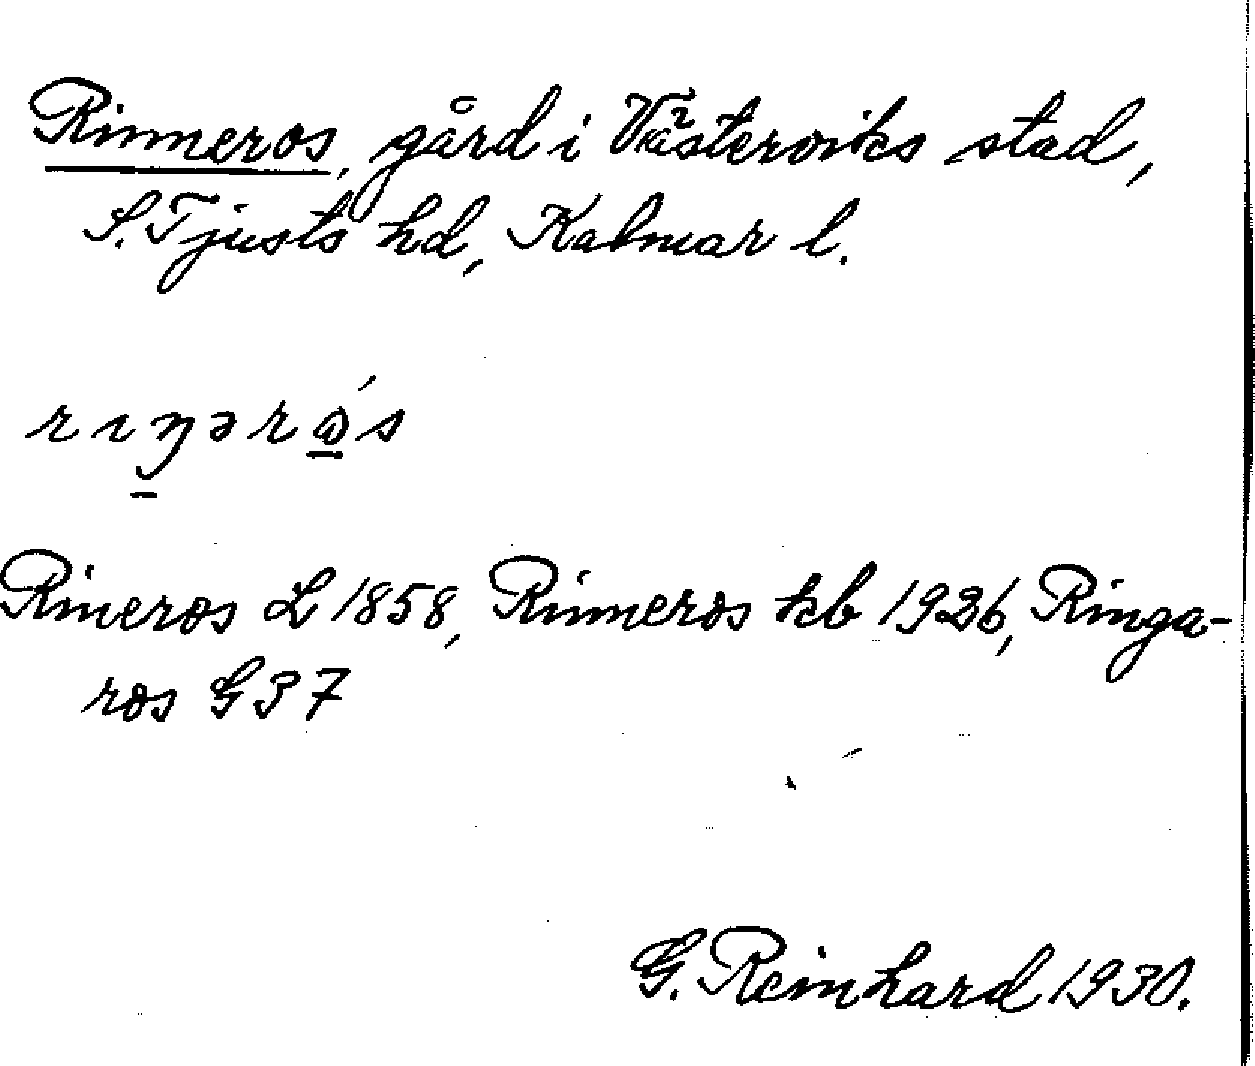 Rinneros, gård i Västerviks stad,
S. Tjusts hd, Kalmar l.
Rineros L 1858, Rinneros kb 1926, Ringa-
ros G 37
G. Reinhard 1930.